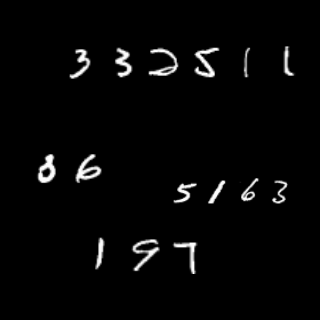 332511
86
5163
197